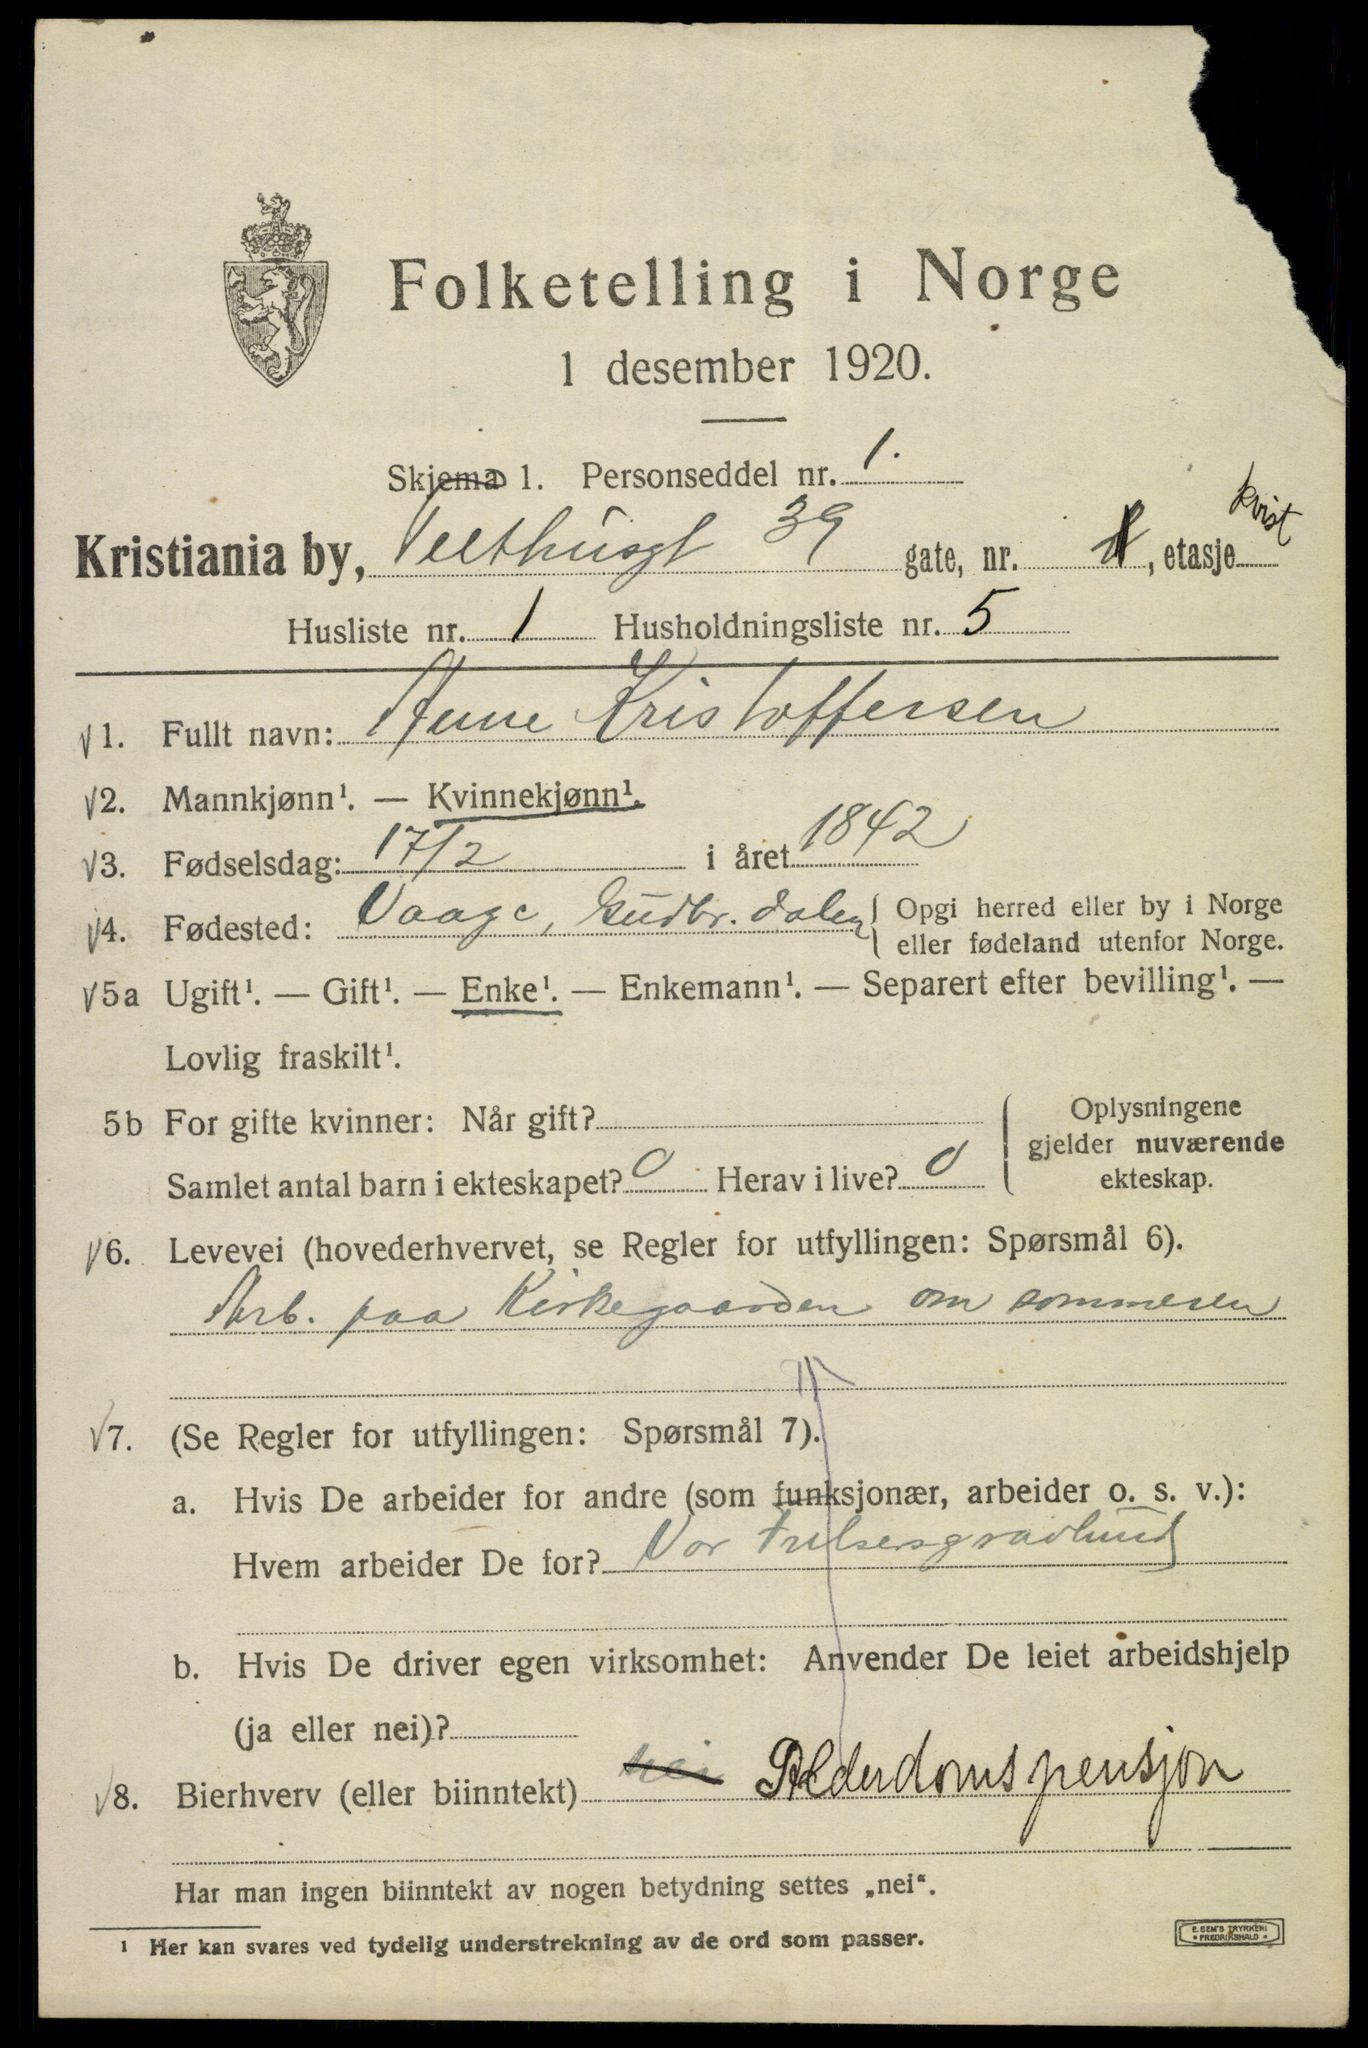 Folketelling i Norge
1 desember 1920.
Skjema 1. Personseddel nr. 1.
Kristiania by, Velthusgt 39 gate, nr. , etasje kvist
Husliste nr. 1 Husholdningsliste nr. 5
√1. Fullt navn: Anne Kristoffersen
√2. Mannkjønn¹. — Kvinnekjønn¹.
√3. Fødselsdag: 17/2 i året 1842
√4. Fødested: Vaage, Gudbr.dalen { Opgi herred eller by i Norge
eller fødeland utenfor Norge.
√5a Ugift¹. — Gift¹. — Enke¹. — Enkemann¹. — Separert efter bevilling¹. —
Lovlig fraskilt¹.
5b For gifte kvinner: Når gift?
Samlet antal barn i ekteskapet? 0 Herav i live? 0
Oplysningene
gjelder nuværende
ekteskap.
√6. Levevei (hovederhvervet, se Regler for utfyllingen: Spørsmål 6).
Arb. paa Kirkegaarden om sommeren
√7. (Se Regler for utfyllingen: Spørsmål 7).
a. Hvis De arbeider for andre (som funksjonær, arbeider o. s. v.):
Hvem arbeider De for? Vor Frelsersgravlund
b. Hvis De driver egen virksomhet: Anvender De leiet arbeidshjelp
(ja eller nei)?
√8. Bierhverv (eller biinntekt) nei Alderdomspensjon
Har man ingen biinntekt av nogen betydning settes „nei“.
¹ Her kan svares ved tydelig understrekning av de ord som passer.
E. SEM'S TRYKKERI
* FREDRIKSHALD *